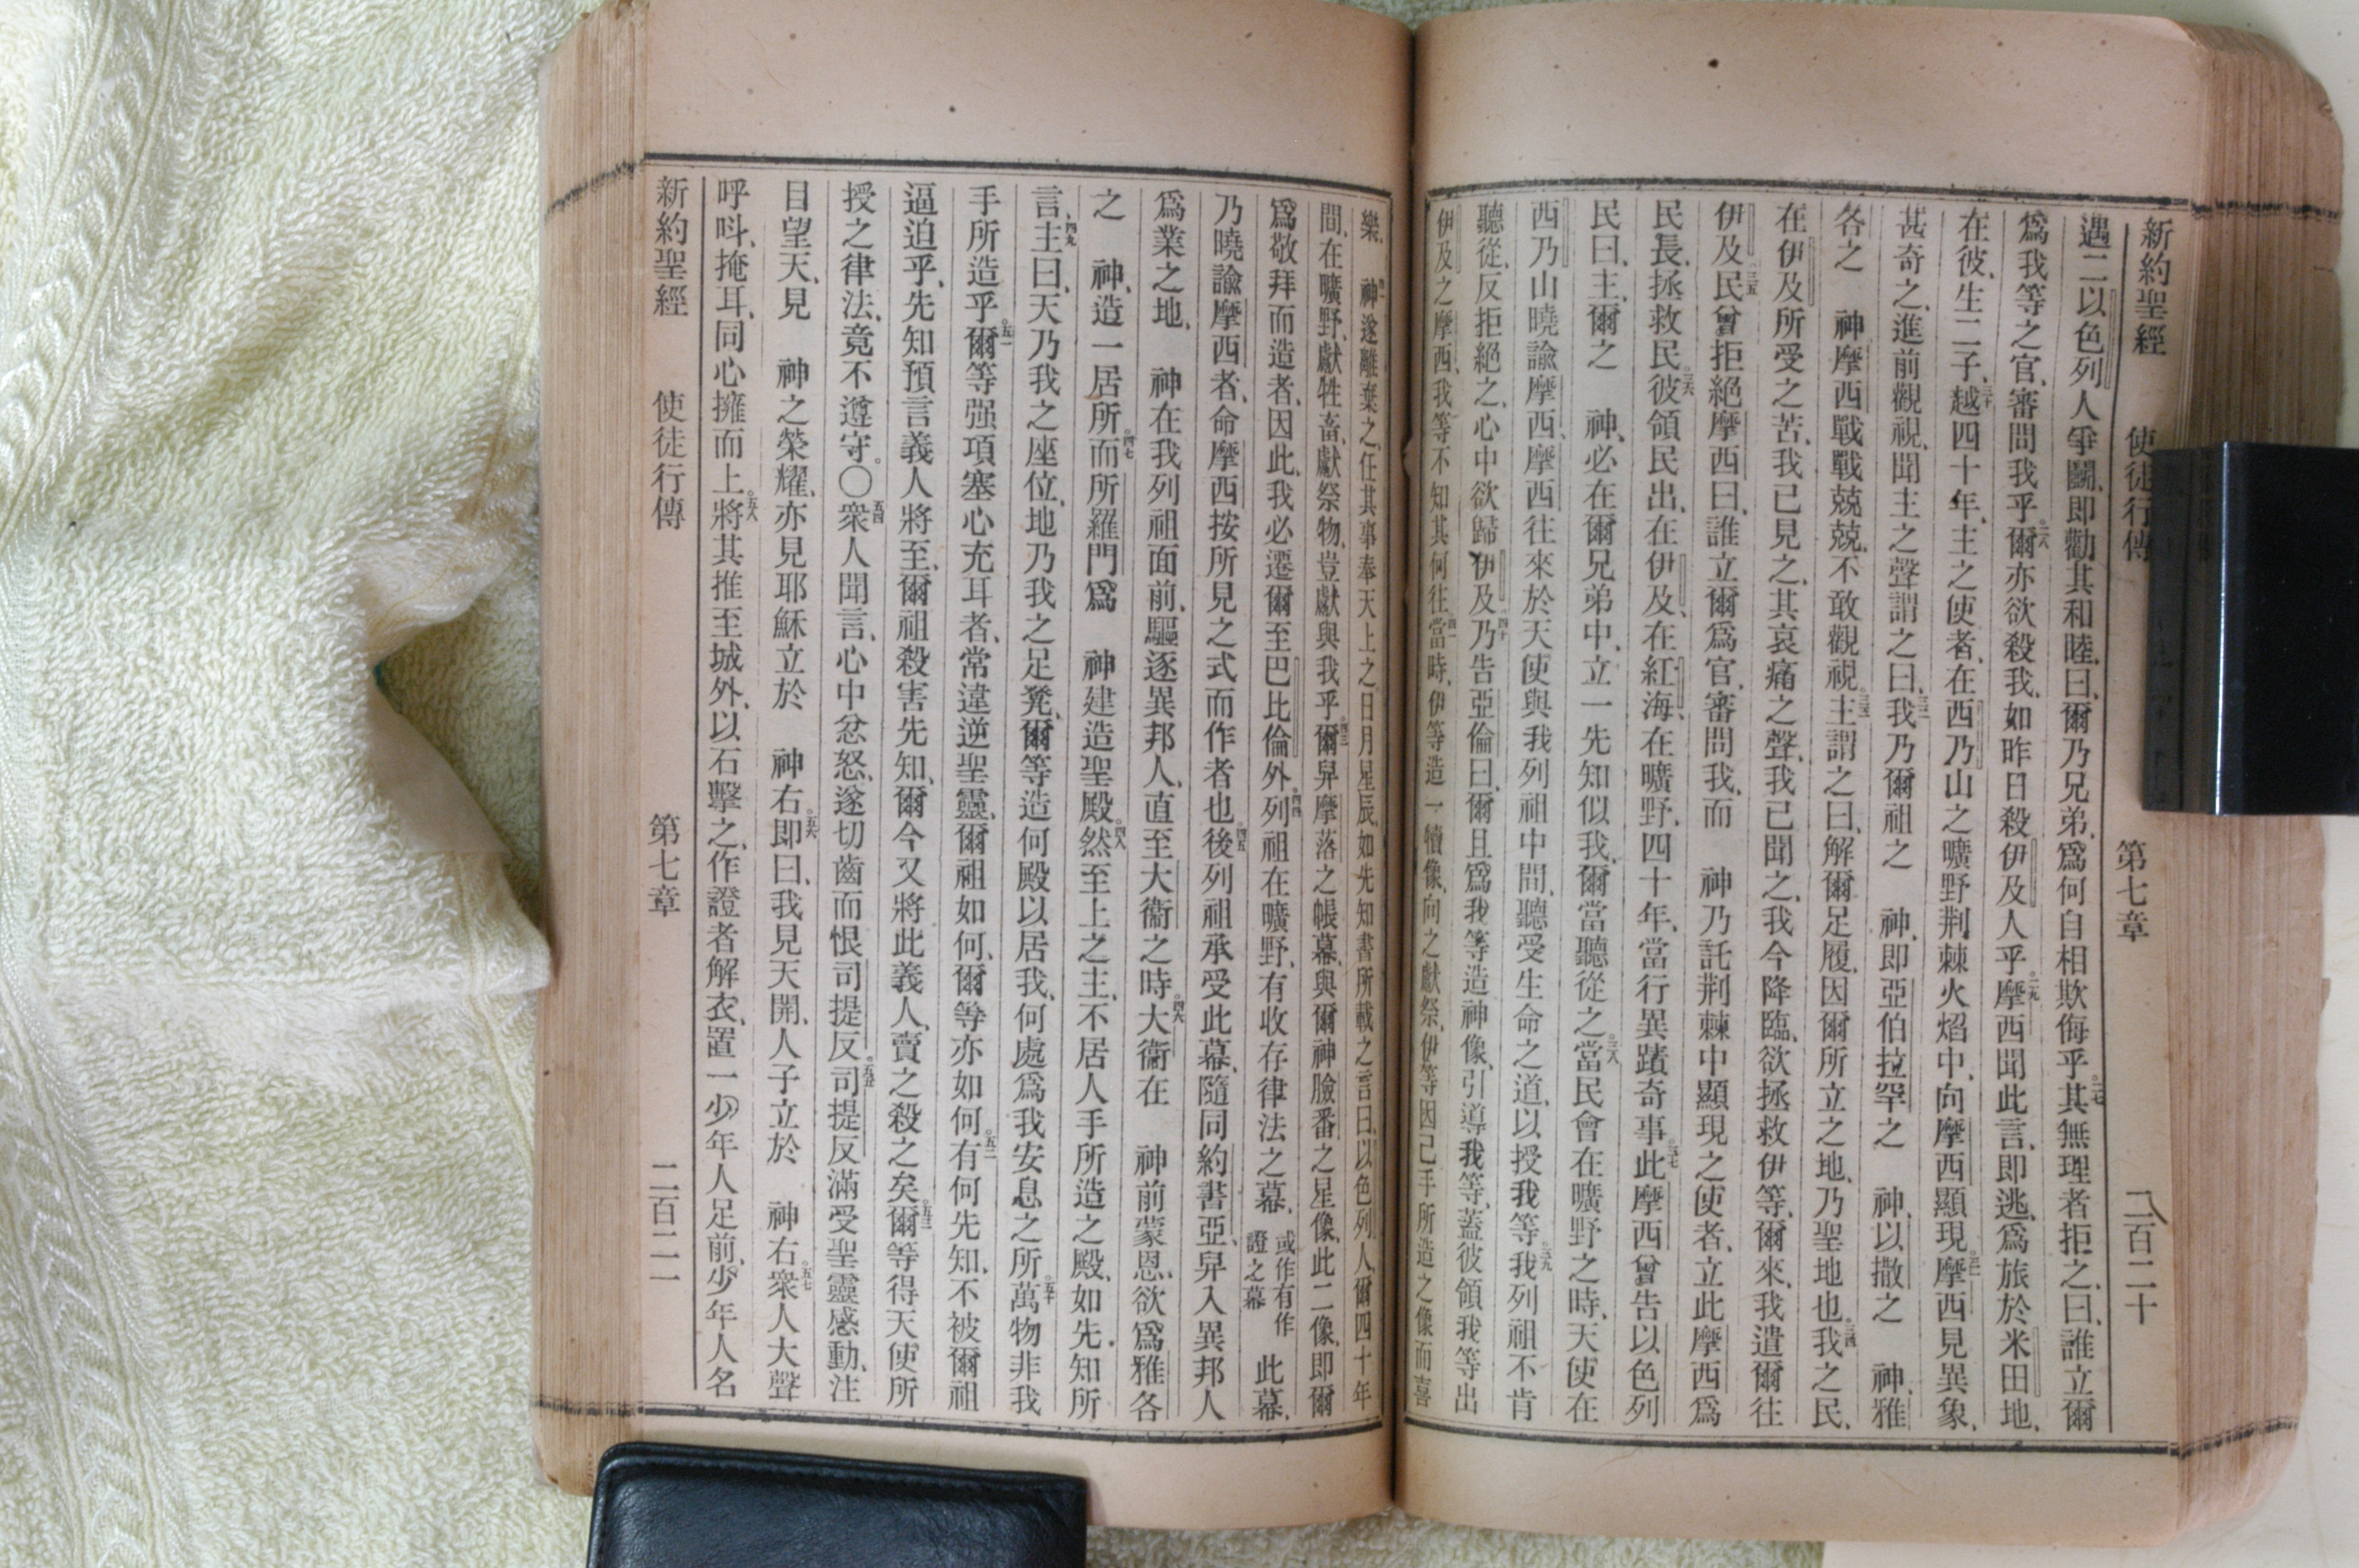 新約聖經 使徒行傳 第七章 二百二十
遇二以色列人爭鬭、即勸其和睦、曰、爾乃兄弟、爲何自相欺侮乎。二七其無理者拒之、曰、誰立爾
爲我等之官、審問我乎。二八爾亦欲殺我、如昨日殺伊及人乎。二九摩西聞此言、即逃、爲旅於米田地、
在彼、生二子、三十越四十年、主之使者、在西乃山之曠野荆棘火焰中、向摩西顯現。三一摩西見異象、
甚奇之、進前觀視、聞主之聲謂之曰、三二我乃爾祖之 神、即亞伯拉罕之 神、以撒之 神、雅
各之 神摩西戰戰兢兢、不敢觀視。三三主謂之曰、解爾足履、因爾所立之地、乃聖地也。三四我之民、
在伊及所受之苦、我已見之、其哀痛之聲、我已聞之、我今降臨、欲拯救伊等、爾來、我遣爾往
伊及。三五民曾拒絕摩西曰、誰立爾爲官、審問我、而 神乃託荆棘中顯現之使者、立此摩西爲
民長、拯救民。三六彼領民出、在伊及、在紅海、在曠野、四十年、當行異蹟奇事。三七此摩西曾告以色列
民曰、主、爾之 神、必在爾兄弟中、立一先知似我、爾當聽從之。三八當民會在曠野之時、天使在
西乃山曉諭摩西、摩西往來於天使與我列祖中間、聽受生命之道、以授我等。三九我列祖不肯
聽從、反拒絕之、心中欲歸伊及、四十乃告亞倫曰、爾且爲我等造神像、引導我等、蓋彼領我等出
伊及之摩西、我等不知其何往、四一當時、伊等造一犢像、向之獻祭、伊等因己手所造之像而喜
樂、四二 神遂離棄之、任其事奉天上之日月星辰、如先知書所載之言曰、以色列人、爾四十年
間、在曠野、獻牲畜、獻祭物、豈獻與我乎。四三爾舁摩落之帳幕、與爾神臉番之星像、此二像、即爾
爲敬拜而造者、因此、我必遷爾至巴比倫外。四四列祖在曠野、有收存律法之幕、或作有作證之幕 此幕、
乃曉諭摩西者、命摩西按所見之式而作者也。四五後列祖承受此幕、隨同約書亞、舁入異邦人
爲業之地、 神在我列祖面前、驅逐異邦人、直至大衞之時。四六大衞在 神前蒙恩、欲爲雅各
之 神、造一居所。四七而所羅門爲 神建造聖殿。四八然至上之主、不居人手所造之殿、如先知所
言、四九主曰、天乃我之座位、地乃我之足凳、爾等造何殿以居我、何處爲我安息之所。五十萬物非我
手所造乎。五一爾等强項塞心充耳者、常違逆聖靈、爾祖如何、爾等亦如何。五二有何先知、不被爾祖
逼迫乎、先知預言義人將至、爾祖殺害先知、爾今又將此義人、賣之殺之矣。五三爾等得天使所
授之律法、竟不遵守。〇五四衆人聞言、心中忿怒、遂切齒而恨司提反。五五司提反滿受聖靈感動、注
目望天、見 神之榮耀、亦見耶穌立於 神右。五六即曰、我見天開、人子立於 神右。五七衆人大聲
呼呌、掩耳、同心擁而上。五八將其推至城外、以石擊之、作證者解衣、置一少年人足前、少年人名
新約聖經 使徒行傳 第七章 二百二一